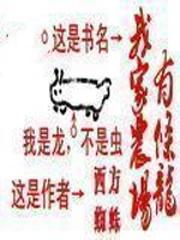 这是书名→
我家农場
有條龍
我是龙，不是虫
这是作者→
西方
蜘蛛